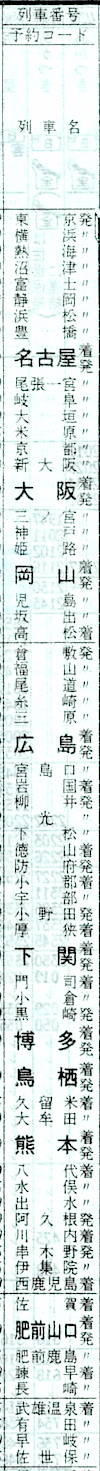 列車番号
予約コード
列車名
東京発
横浜〃
熱海〃
沼津〃
富士〃
静岡〃
浜松〃
豊橋〃
名古屋着発
尾張一宮〃
岐阜〃
大垣〃
米原〃
京都〃
新大阪〃
大阪着発
三ノ宮〃
神戸〃
姫路〃
岡山着発
児島〃
坂出〃
高松着
倉敷発
福山〃
尾道〃
糸崎〃
三原〃
広島着発
宮島口〃
岩国〃
柳井〃
光〃
下松〃
徳山〃
防府〃
小郡〃
宇部〃
小野田〃
厚狭〃
下関着発
門司〃
小倉〃
黒崎〃
博多着発
鳥栖着発
久留米〃
大牟田〃
熊本着発
八代〃
水俣〃
出水〃
阿久根
川内
串木野
伊集院
西鹿児島着
佐賀
肥前山口着発
肥前鹿島
諫早
長崎着
武雄温泉
有田
早岐
佐世保着